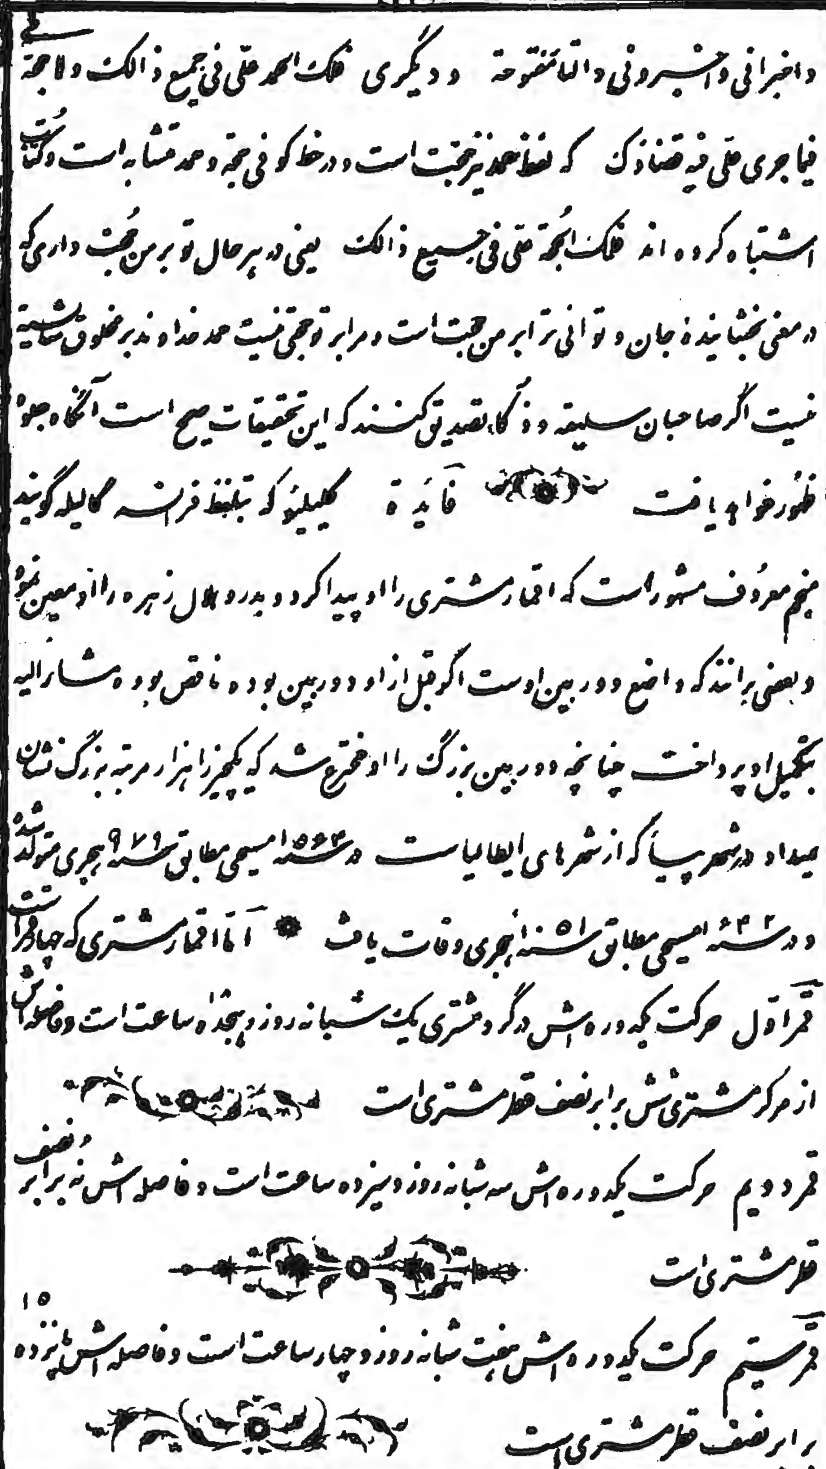 و اخبرانی و اخبرونی و التا مفتوحة و دیگری فلک الحمد علّی فی جمیع ذالک و لا حجة لی
فیما جری علّی فیه قضاؤک که لفظ حمد نیز حجّت است و در خط کوفی حجّة و حمد متشابه است و کتّاب
اشتباه کرده اند فلک الحُجّة علّی فی جمیع ذالک یعنی در هر حال تو بر من حُجّت داری که
در معنی بخشاینده جان و توانی ترا بر من حجّت است و مرا بر تو حجّتی نیست حمد خداوند بر مخلوق شایسته
نیست اگر صاحبان سلیقه و ذکاء تصدیق کنند که این تحقیقات صحیح است آنگاه جلوهٔ
ظهور خواهد یافت فَایدة گلیلیو که بتلفظ فرانسه گالیله گویند
منجم معروف مشهور است که اقمار مشتری را او پیدا کرد و بدر و هلال زهره را او معین نموده
و بعضی برانند که واضع دوربین اوست اگر قبل از او دوربین بوده ناقص بوده مشارالیه
بتکمیل او پرداخت چنانچه دوربین بزرگ را او مخترع شد که یکچیز را هزار مرتبه بزرگ نشان
میداد در شهر پیسا که از شهرهای ایطالیا است در سنه ۱۵۶۴ مسیحی مطابق سنه ۹۷۹ هجری متولد شده
و در سنه ۱۶۴۲ مسیحی مطابق سنه ۱۰۵۱ هجری وفات یافت امّا اقمار مشتری که چهار قمر است
قمر اوّل حرکت یکدوره اش در گرد مشتری یک شبانه روز و هیجده ساعت است و فاصله اش
از مرکز مشتری شش برابر نصف قطر مشتری است
قمر دویم حرکت یکدوره اش سه شبانه روز و سیزده ساعت است و فاصله اش نه برابر و نصف
قطر مشتری است
قمر سیّم حرکت یکدوره اش هفت شبانه روز و چهار ساعت است و فاصله اش پانزده ۱۵
برابر نصف قطر مشتری است